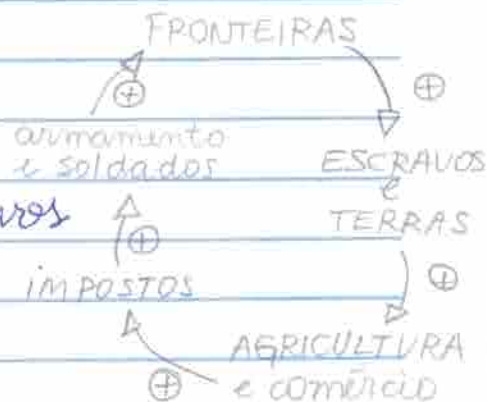 FRONTEIRAS
⊕
⊕
armamento
e soldados
ESCRAVOS
e
TERRAS
⊕
⊕
IMPOSTOS
AGRICULTURA
e comércio
⊕